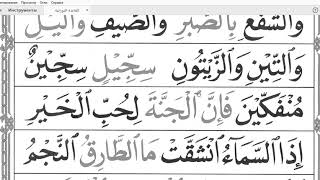 Инструменты
وَالشَّفْعِ بِالصَّبْرِ وَالصَّيْفِ وَالَّيْلِ
وَالتِّيْنِ وَالزَّيْتُونِ سِجِّيْلٍ سِجِّيْنٌ
مُنْفَكِّيْنَ فَاِنَّ الْجَنَّةَ لِحُبِّ الْخَيْرِ
اِذَا السَّمَآءُ انْشَقَّتْ مَا الطَّارِقُ النَّجْمُ